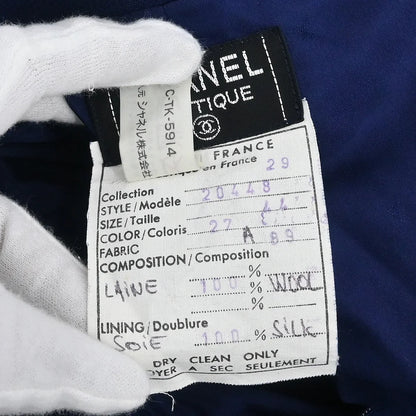 ANEL
TIQUE
C-TK-5914
シャネル株式会社
FRANCE
en France
Collection 29
STYLE/Modèle 20448
SIZE/Taille 44
COLOR/Coloris 27
FABRIC A 89
COMPOSITION/Composition
LAINE 100 % WOOL
%
LINING/Doublure %
SOIE 100 % SILK
DRY CLEAN ONLY
OYER A SEC SEULEMENT